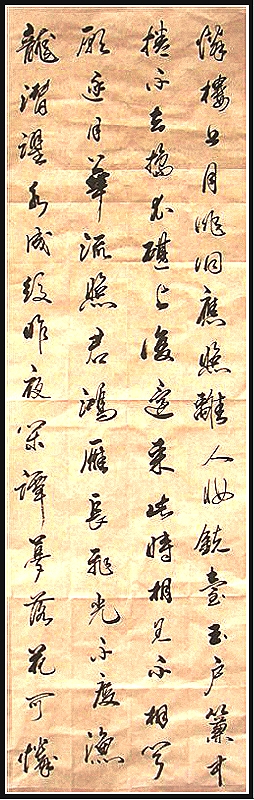 憐樓上月徘徊應照離人妝鏡臺玉戶簾中
捲不去搗衣碪上復還来此時相見不相聞
願逐月華流照君鴻雁長飛光不度漁
龍潛躍水成紋昨夜閑潭夢落花可憐